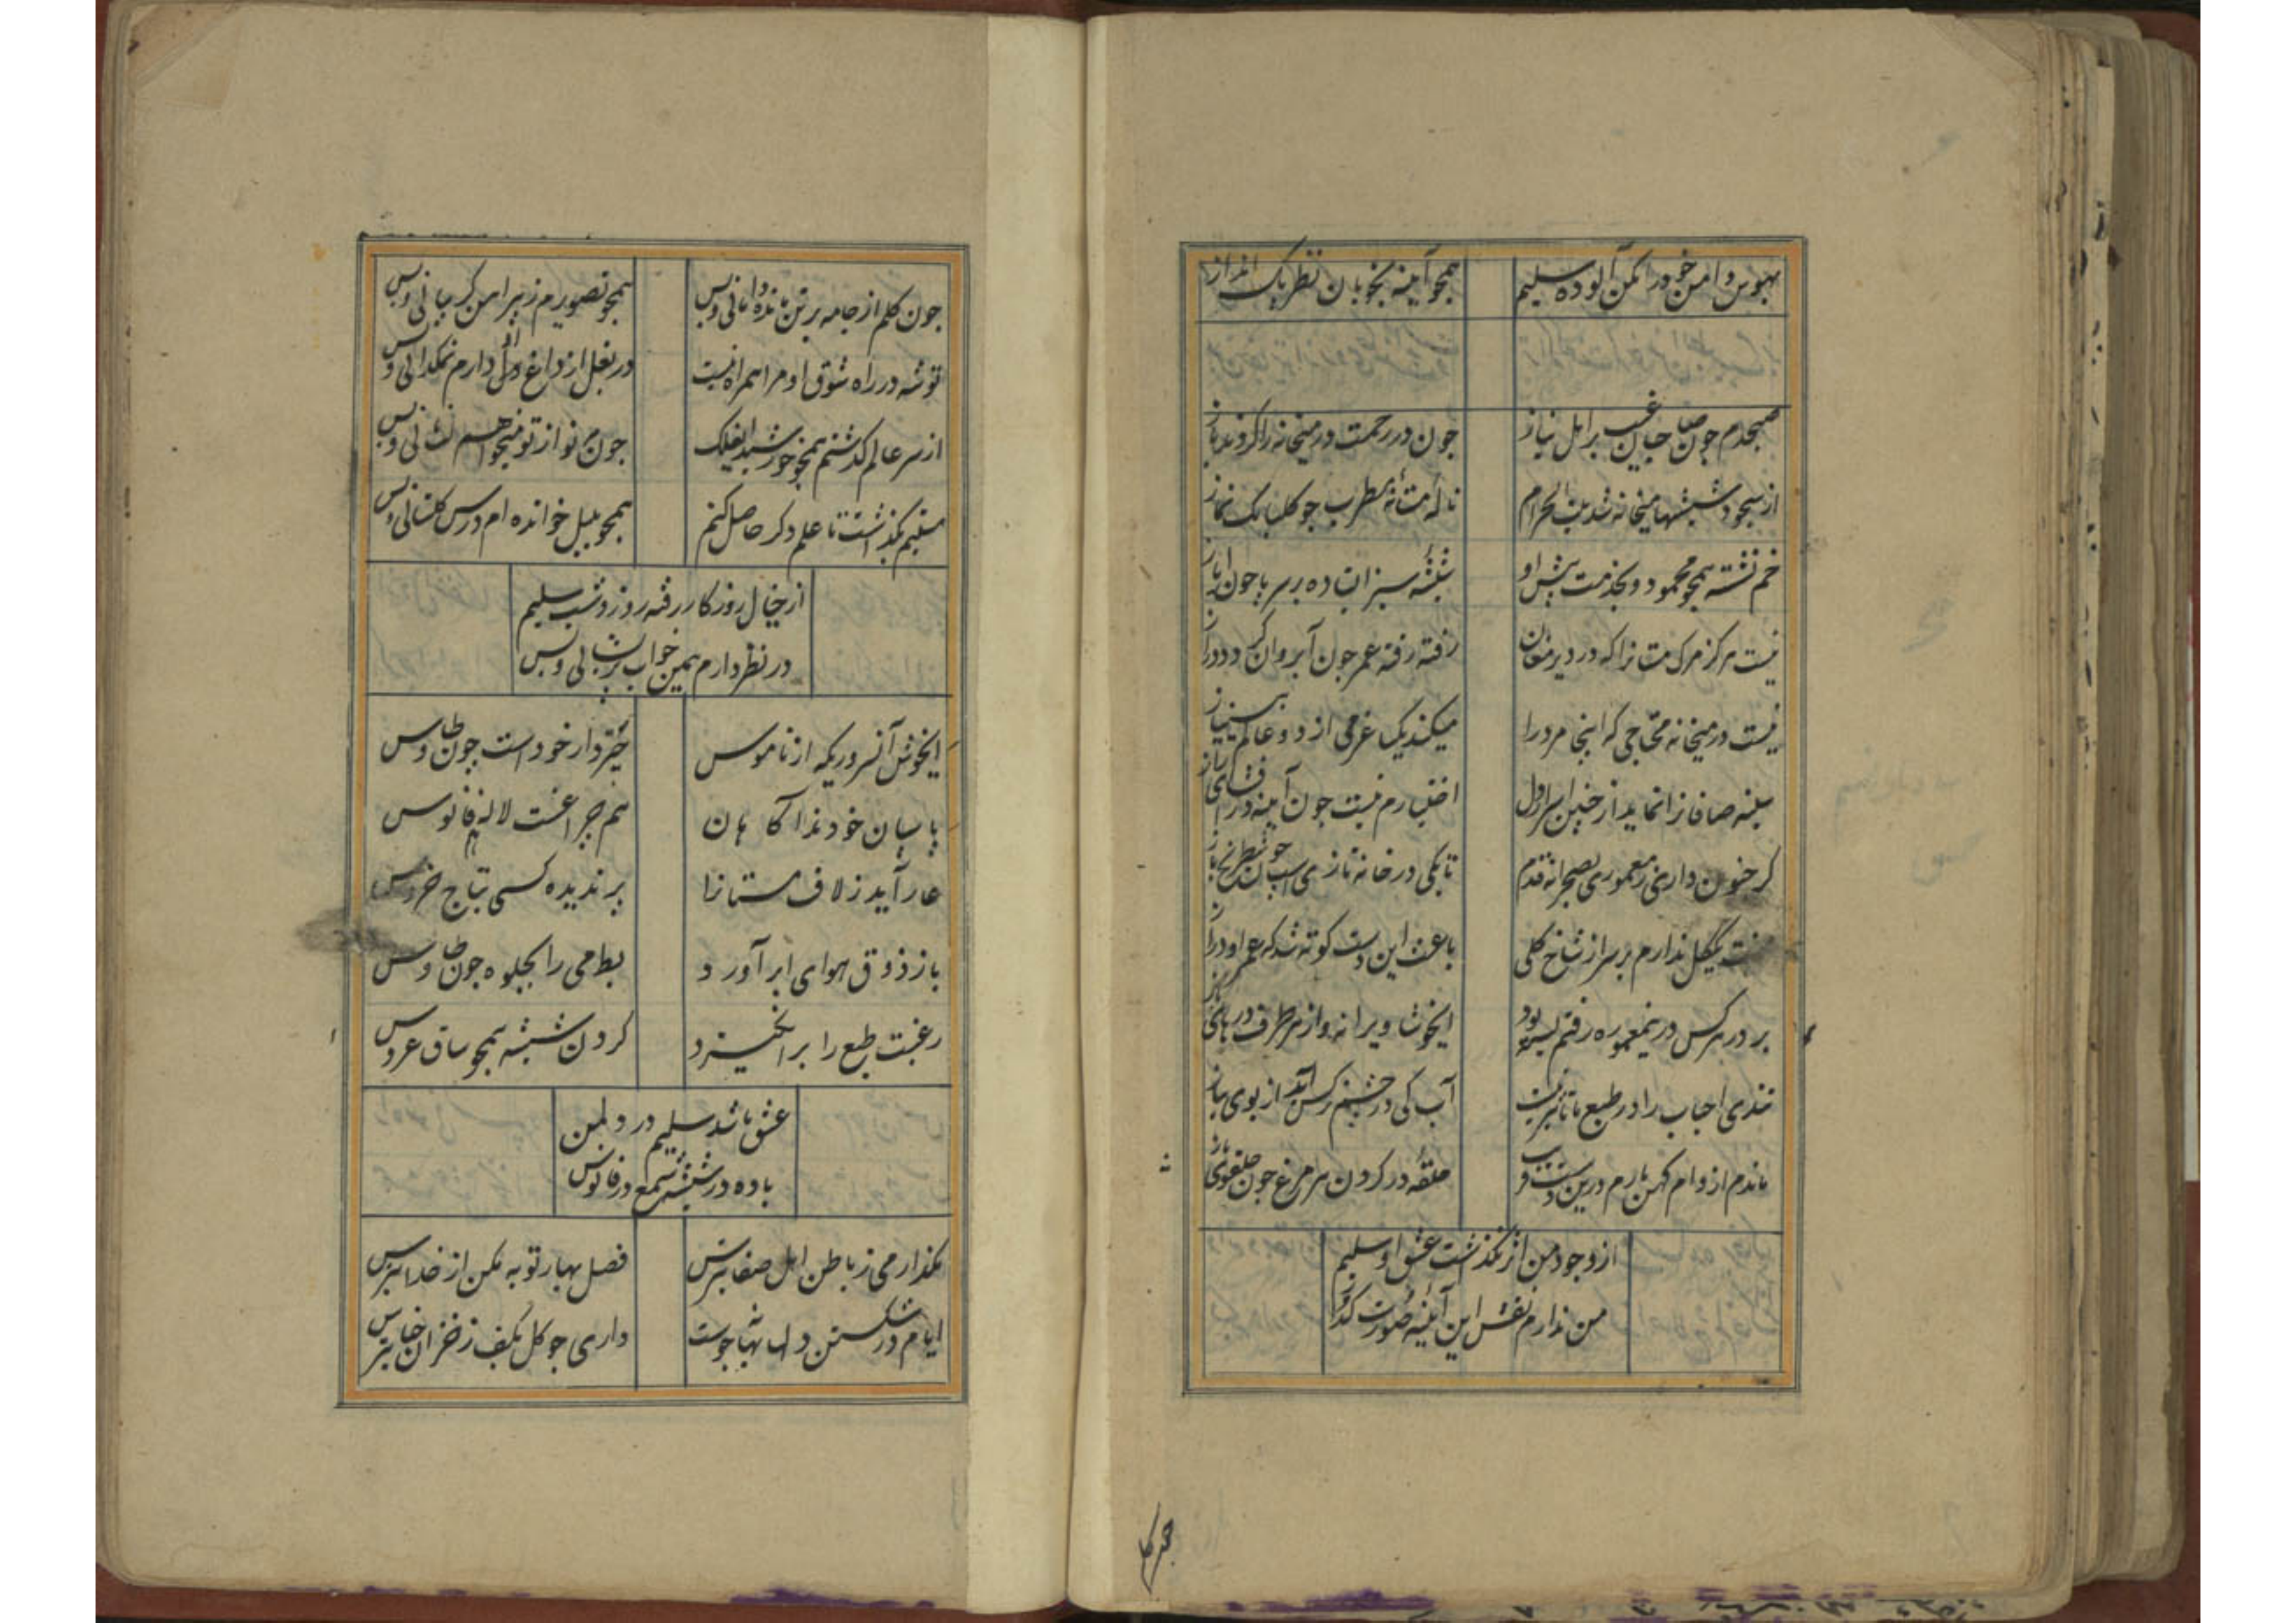 بهوس دامن خود را مکن آلوده سلیم
همچو آینه بخوبان نظر پاک انداز
صبحدم چون صاحبان غیب بر اهل نیاز
چون در رحمت در میخانه را کردند باز
از سجود شیشها میخانه شد بیت الحرام
نالهٔ مستانهٔ مطرب چو کلبانک نماز
خم نشسته همچو محمود و بخدمت پیش او
شیشهٔ سبز ایستاده بر سر پا چون ایاز
نیست هرکز مرک مستانرا که در دیر مغان
رفته رفته عمر چون آب روان کردد دراز
نیست در میخانه محتاجی که اینجا مرد را
میکند یک غرمی از دو عالم بی نیاز
سینه صافانرا نماید از جبین اسرار دل
اختیارم نیست چون آینه در افشای راز
کر جنون داری ز معموری بصحرا نه قدم
تا بکی در خانه تازی اسب چون شطرنج باز
منت یکگل ندارم بر سر از شاخ کلی
باعث این دست کوته شد که عمر او دراز
بر در هرکس درین معموره رفتم بسته بود
ایخوشا ویرانه و از هر طرف درهای باز
تندی احباب را در طبع ما تاثیر نیست
آب کی در چشم نرکس آید از بوی پیاز
ماندم از دام کهن یارم درین دشت فریب
حلقه در کردن سر مرغ چون حلقوی باز
از وجود من اثر نکذاشت عشق او سلیم
من ندارم نقش این آینهٔ صورت کداز
چون کلم از جامه بر تن مانده دامانی و بس
همچو تصویرم ز پیراهن کریبانی و بس
توشه در راه شوق او مرا همراه نیست
در بغل از داغ او دل دارم نمکدانی و بس
از سر عالم کذشتم همچو خورشید ای فلک
چون مه نو از تو میخواهم لب نانی و بس
مفلسیم نکذاشت تا علم دکر حاصل کنم
همچو بلبل خوانده ام درس کلستانی و بس
از خیال روزکار رفته روز و شب سلیم
در نظر دارم همین خواب پریشانی و بس
ایخوش آنسروریکه از ناموس
چتردار خود است چون طاوس
پاسبان خودند آکاهان
هم چراغست لاله هم فانوس
عار آید ز لاف مستانرا
پر ندیده کسی بتاج خروس
باز ذوق هوای ابر آورد
بط می را بجلوه چون طاوس
رغبت طبع را برانکیزد
کردن شیشه همچو ساق عروس
عشق باشد سلیم در دل من
باده در شیشه شمع در فانوس
بکذار می ز باطن اهل صفا بترس
فصل بهار توبه مکن از خدا بترس
ایام در شکستن دلها بهانه جوست
داری چو کل بکف ز خزان حنا بترس